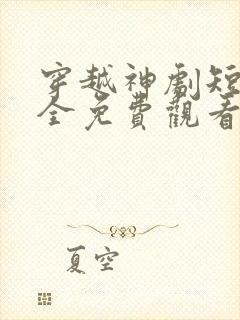 穿越神劇短
全免費觀看
夏空